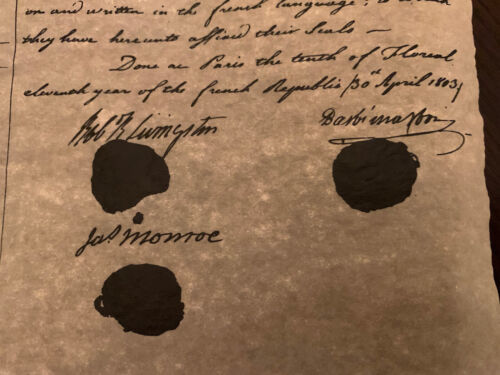 on and written in the french language; to which
they have hereunto affixed their Seals —
Done at Paris the tenth of Floreal
eleventh year of the french Republic (30th April 1803)
Robt R Livingston
Barbé marbois
Jas Monroe